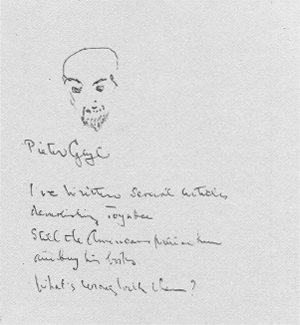 Pieter Geyl
I've written several articles
demolishing Toynbee
Still the Americans him
and buy his books
What's wrong with them?